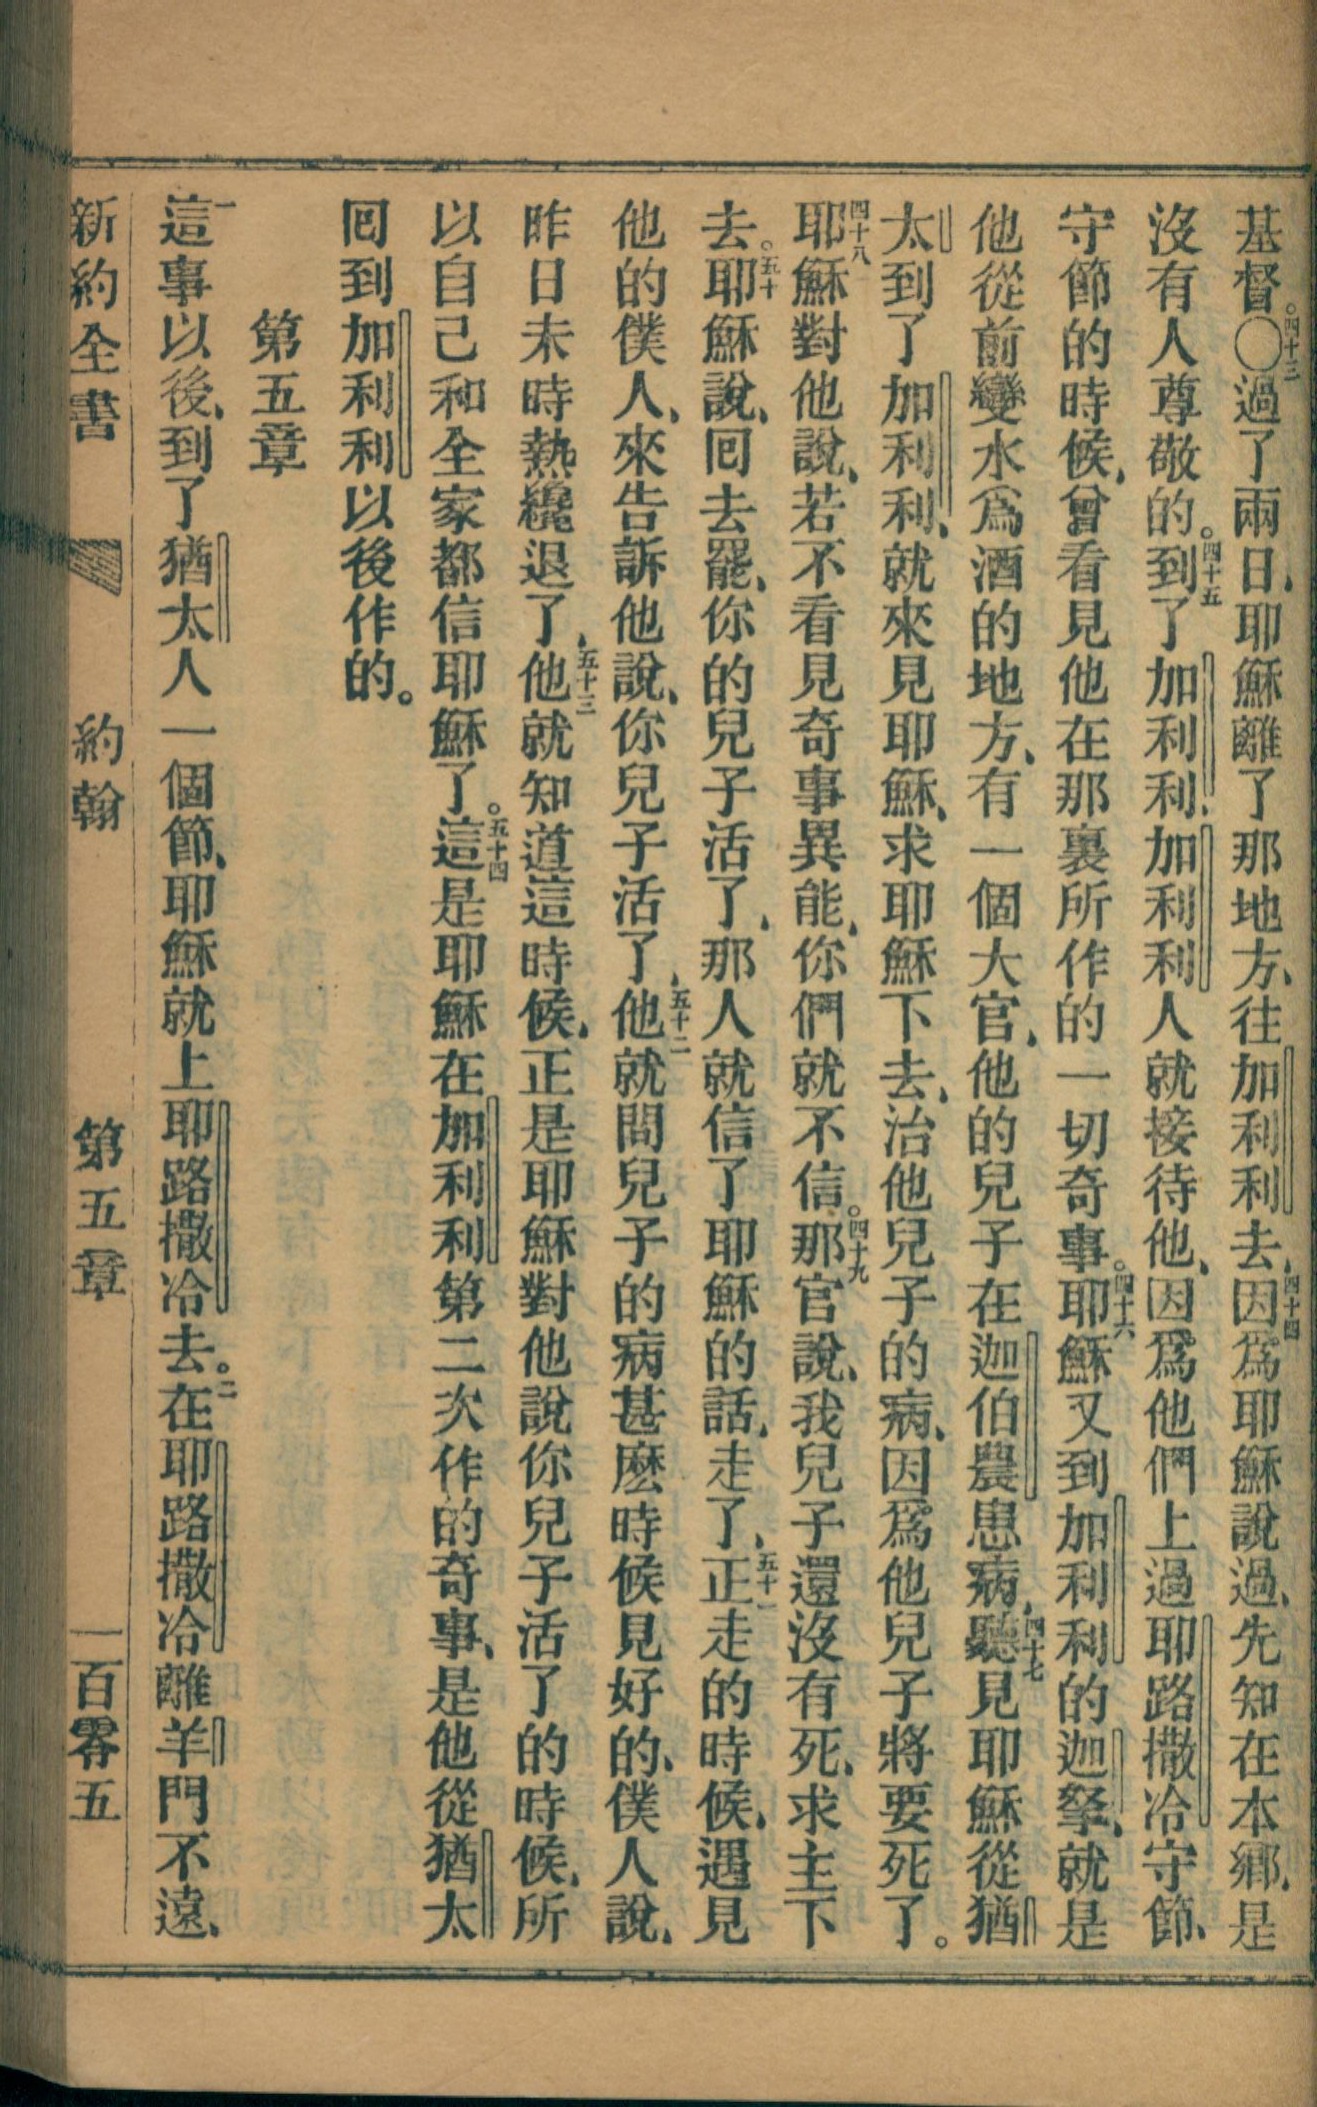 基督。四十三〇過了兩日、耶穌離了那地方、往加利利去、四十四因爲耶穌說過、先知在本鄉、是
沒有人尊敬的。四十五到了加利利、加利利人就接待他、因爲他們上過耶路撒冷守節、
守節的時候、曾看見他在那裏所作的一切奇事。四十六耶穌又到加利利的迦拏、就是
他從前變水爲酒的地方、有一個大官、他的兒子在迦伯農患病、四十七聽見耶穌從猶
太到了加利利、就來見耶穌、求耶穌下去、治他兒子的病、因爲他兒子將要死了。
四十八耶穌對他說、若不看見奇事異能、你們就不信。四十九那官說、我兒子還沒有死、求主下
去。五十耶穌說、回去罷、你的兒子活了、那人就信了耶穌的話、走了、五十一正走的時候、遇見
他的僕人、來告訴他說、你兒子活了、五十二他就問兒子的病甚麽時候見好的、僕人說、
昨日未時熱纔退了、五十三他就知道這時候、正是耶穌對他說你兒子活了的時候、所
以自己和全家都信耶穌了。五十四這是耶穌在加利利第二次作的奇事、是他從猶太
回到加利利以後作的。
第五章
一這事以後、到了猶太人一個節、耶穌就上耶路撒冷去。二在耶路撒冷離羊門不遠、
新約全書 約翰 第五章 一百零五